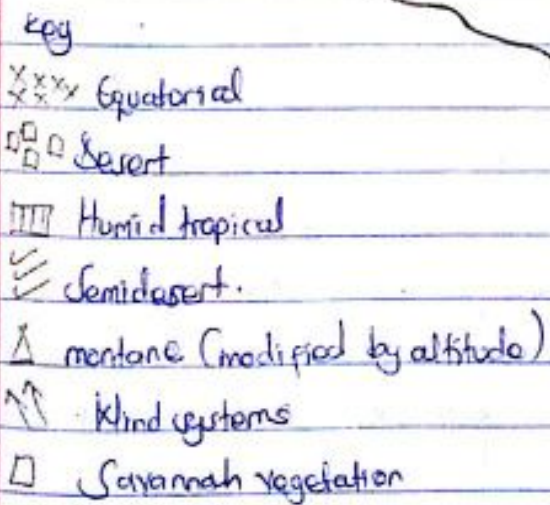 key
Equatorial
Desert
Humid tropical
Semidesert.
montane (modified by altitude)
Wind systems
Savannah vegetation